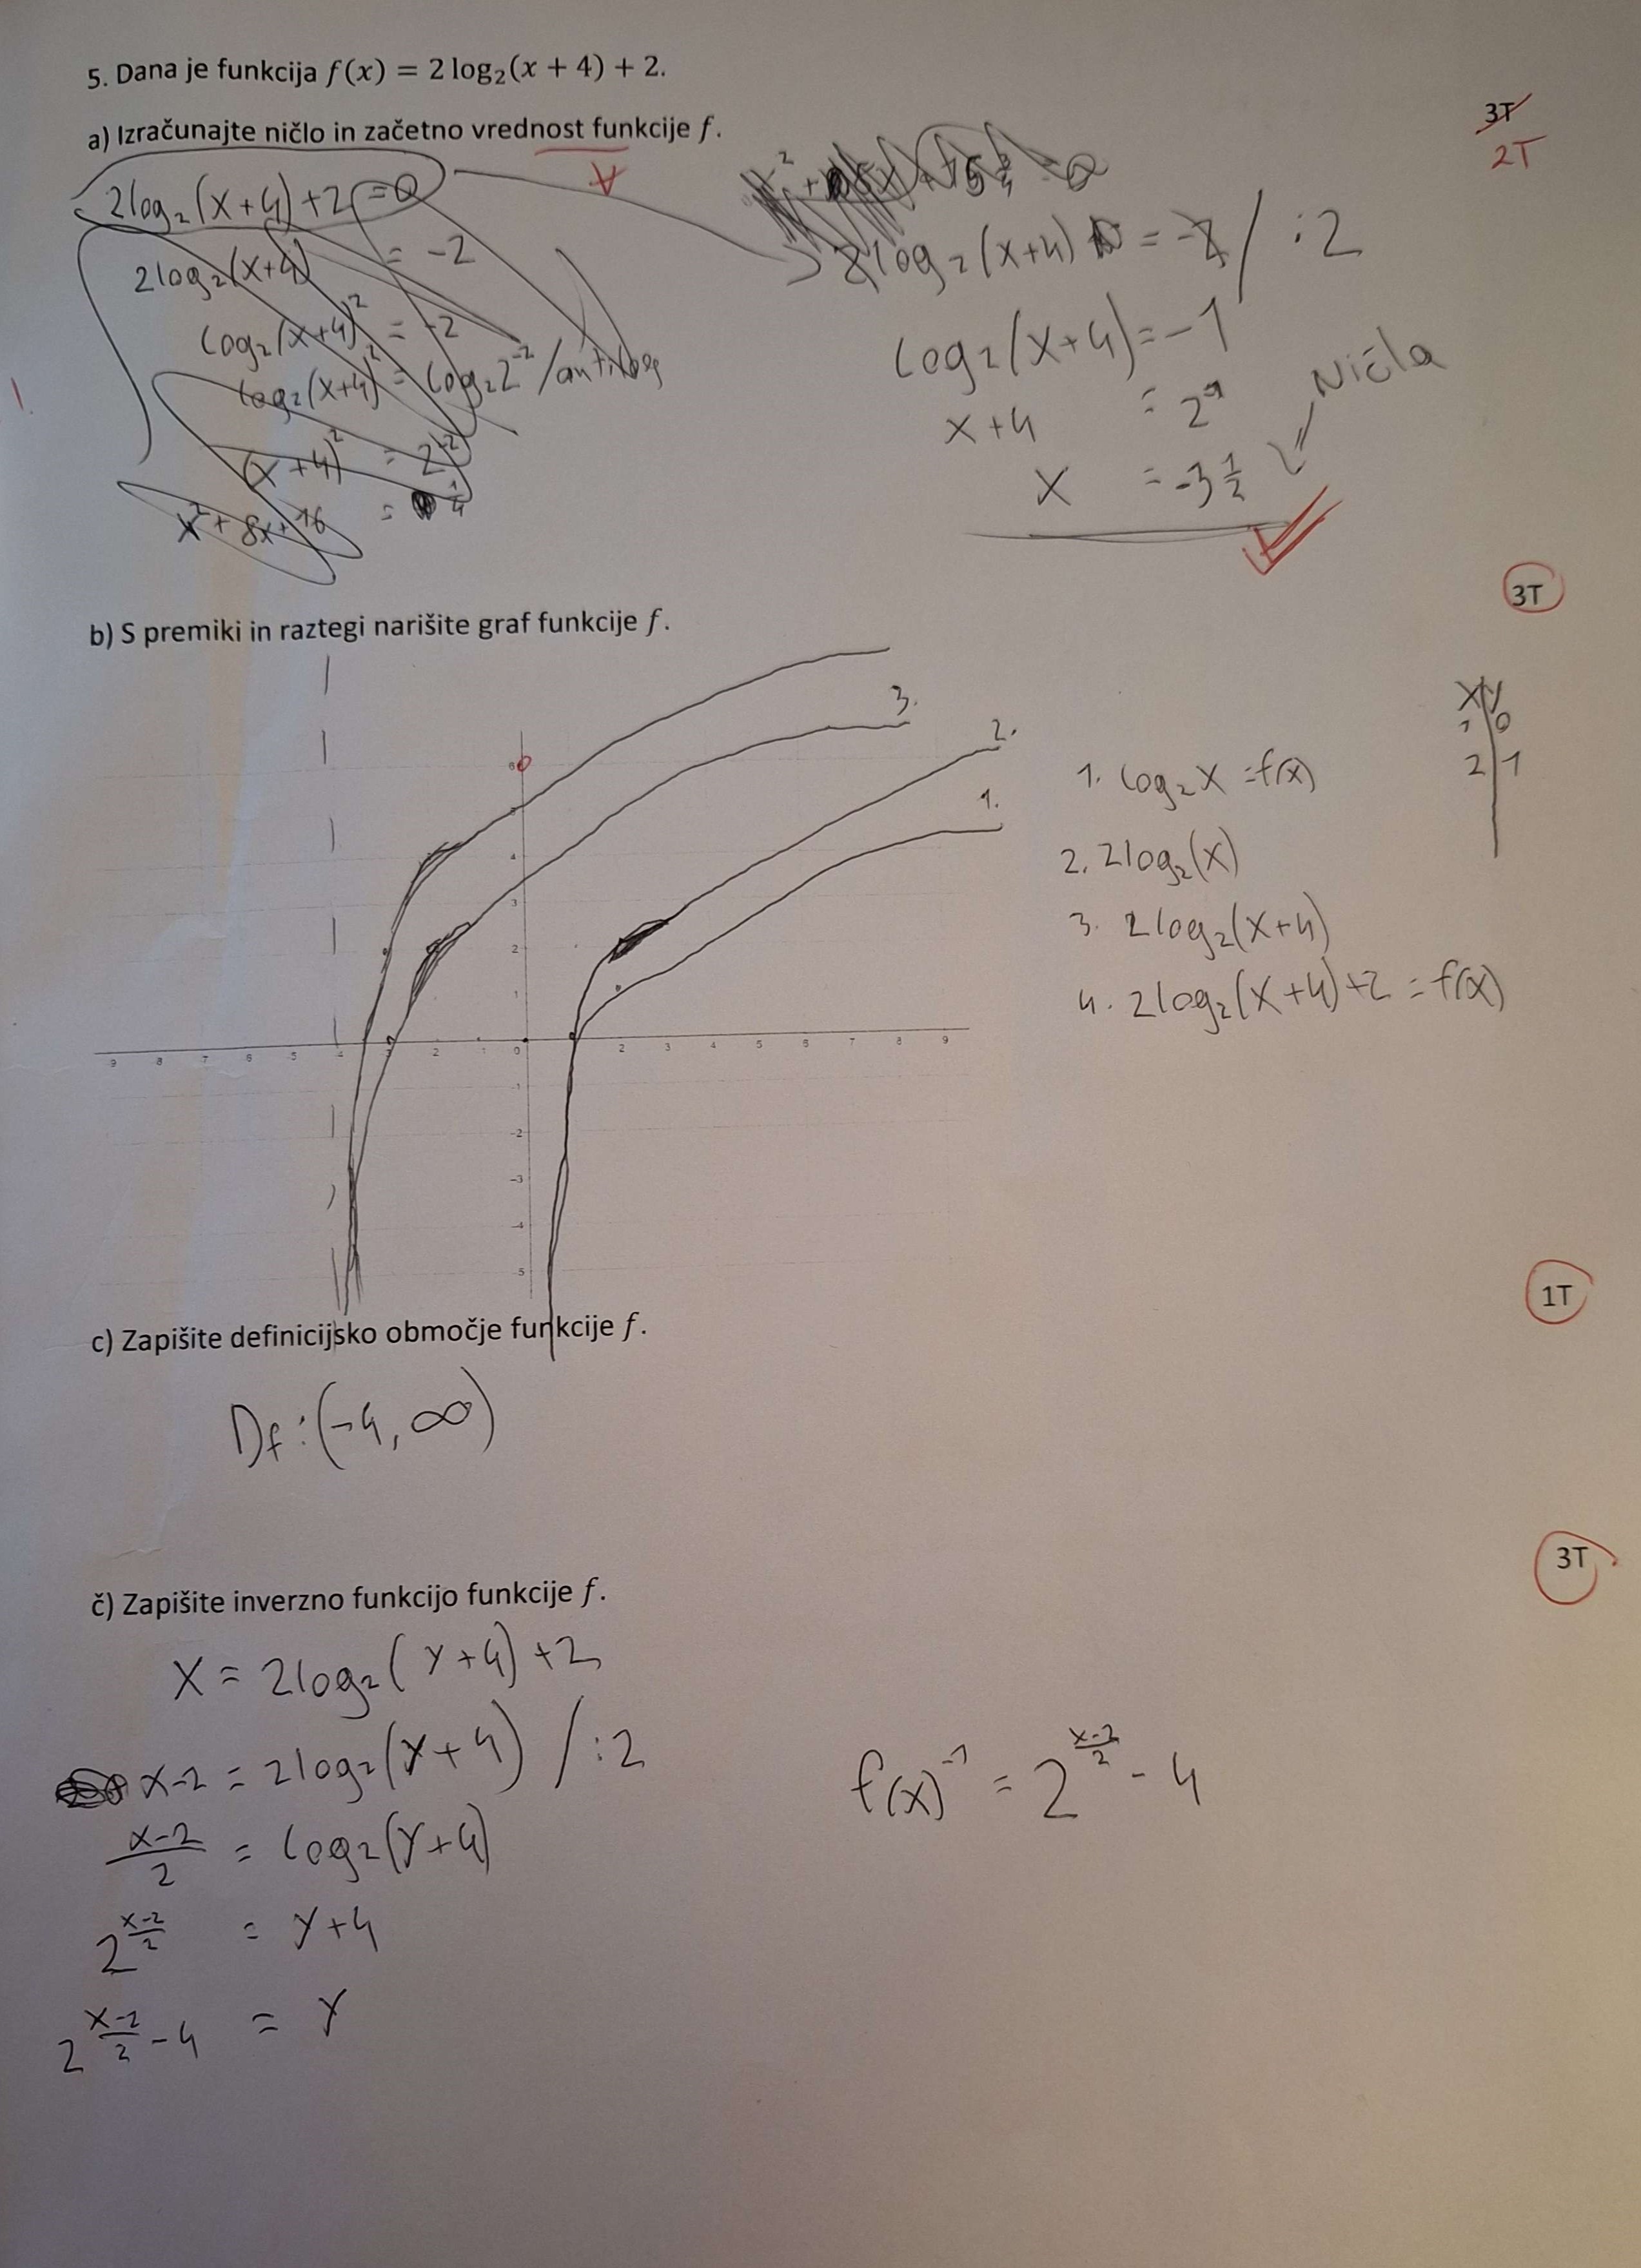 5. Dana je funkcija f(x) = 2 log₂(x + 4) + 2.
a) Izračunajte ničlo in začetno vrednost funkcije f.
3T
2T
2log₂(x+4)+2=0
2log₂(x+4) = -2
log₂(x+4)² = -2
log₂(x+4)² = log₂2⁻² /antilog
(x+4)² = 2⁻²
x²+8x+16 = 1/4
2log₂(x+4) = -2 / :2
log₂(x+4)=-1
x+4 = 2⁻¹
x = -3 1/2
Ničla
b) S premiki in raztegi narišite graf funkcije f.
3T
3.
2.
1.
x y
1 0
2 1
1. log₂x =f(x)
2. 2log₂(x)
3. 2log₂(x+4)
4. 2log₂(x+4)+2 = f(x)
6
5
4
3
2
1
-9 -8 -7 -6 -5 -4 -3 -2 -1 0 2 3 4 5 6 7 8 9
-1
-2
-3
-4
-5
c) Zapišite definicijsko območje funkcije f.
1T
Df:(-4, ∞)
č) Zapišite inverzno funkcijo funkcije f.
3T
x = 2log₂(y+4)+2
x-2 = 2log₂(y+4) / :2
(x-2)/2 = log₂(y+4)
2^((x-2)/2) = y+4
2^((x-2)/2) -4 = y
f(x)⁻¹ = 2^((x-2)/2) - 4